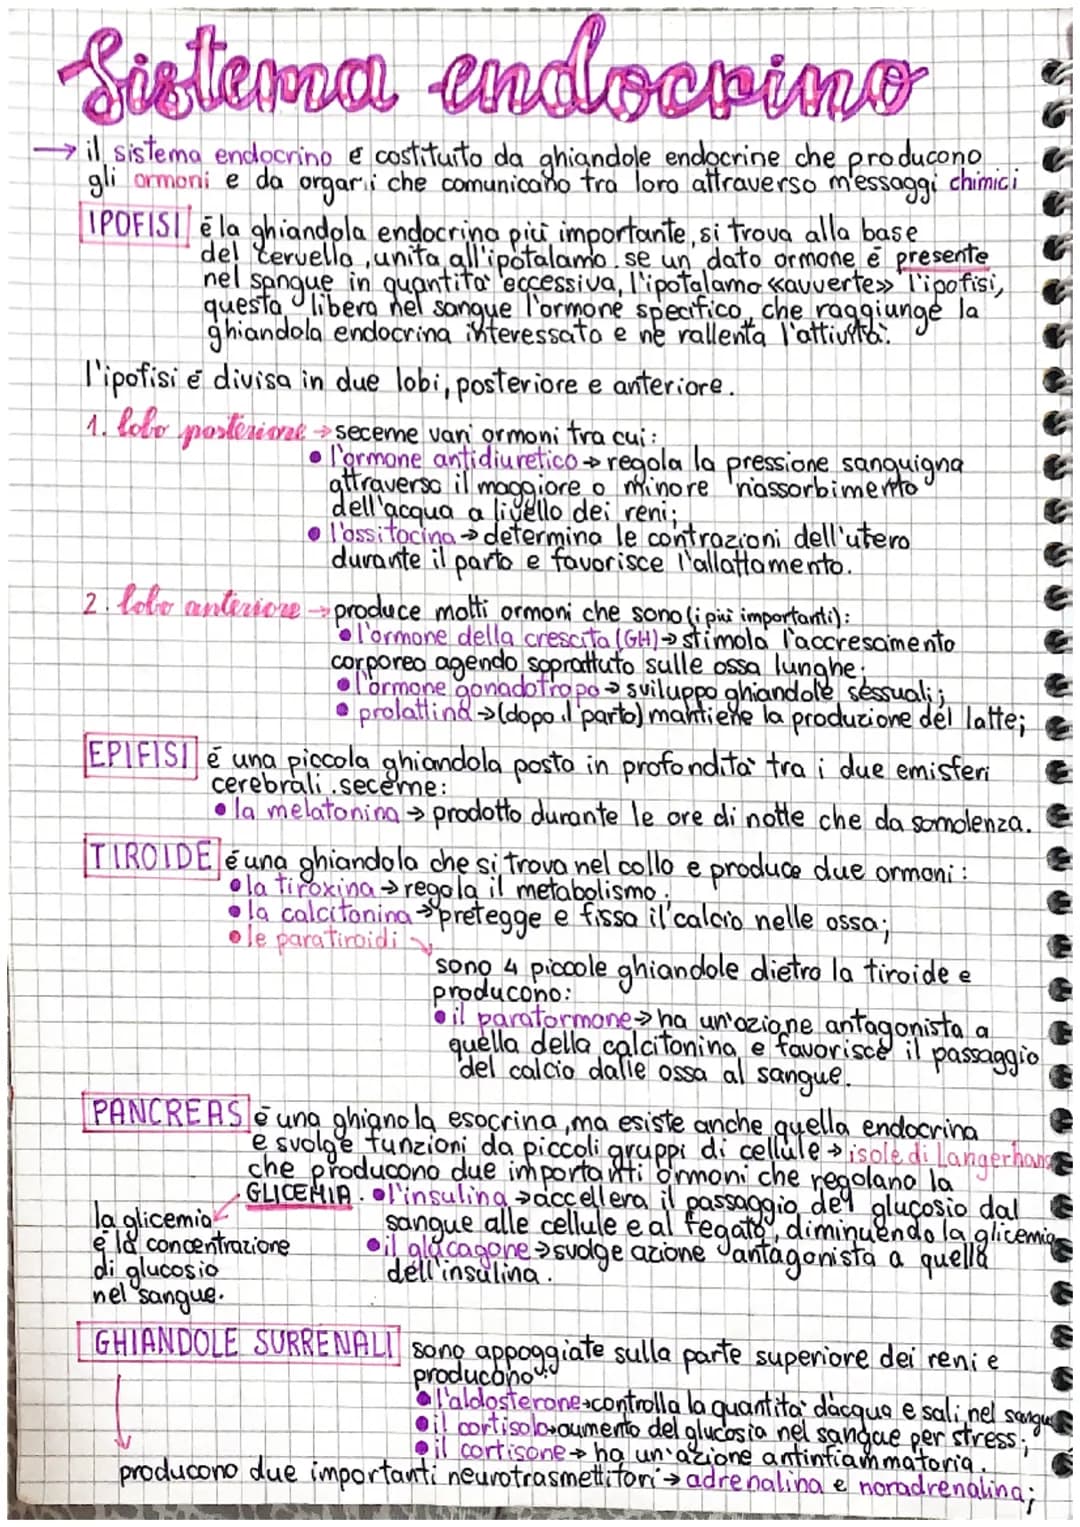 Sistema endocrino
→ il sistema endocrino é costituito da ghiandole endocrine che producono
gli ormoni e da organi che comunicano tra loro attraverso messaggi chimici
IPOFISI é la ghiandola endocrina piú importante, si trova alla base
del cervello, unita all'ipotalamo. se un dato ormone é presente
nel sangue in quantitá eccessiva, l'ipotalamo «avverte» l'ipofisi,
questa libera nel sangue l'ormone specifico, che raggiunge la
ghiandola endocrina interessata e ne rallenta l'attivitá.
l'ipofisi é divisa in due lobi, posteriore e anteriore.
1. lobo posteriore → secerne vari ormoni tra cui:
• l'ormone antidiuretico → regola la pressione sanguigna
attraverso il maggiore o minore riassorbimento
dell'acqua a livello dei reni;
• l'ossitocina → determina le contrazioni dell'utero
durante il parto e favorisce l'allattamento.
2. lobo anteriore → produce molti ormoni che sono (i piú importanti):
• l'ormone della crescita (GH) → stimola l'accrescimento
corporeo agendo soprattuto sulle ossa lunghe;
• l'ormone gonadotropo → sviluppo ghiandole sessuali;
• prolattina → (dopo il parto) mantiene la produzione del latte;
EPIFISI é una piccola ghiandola posta in profonditá tra i due emisferi
cerebrali. secerne:
• la melatonina → prodotto durante le ore di notte che da somolenza.
TIROIDE é una ghiandola che si trova nel collo e produce due ormoni:
• la tiroxina → regola il metabolismo.
• la calcitonina → pretegge e fissa il calcio nelle ossa;
• le paratiroidi
sono 4 piccole ghiandole dietro la tiroide e
producono:
• il paratormone → ha un'azione antagonista a
quella della calcitonina e favorisce il passaggio
del calcio dalle ossa al sangue.
PANCREAS é una ghianola esocrina, ma esiste anche quella endocrina
e svolge funzioni da piccoli gruppi di cellule → isole di Langerhans
che producono due importanti ormoni che regolano la
GLICEMIA. • l'insulina → accellera il passaggio del glucosio dal
sangue alle cellule e al fegato, diminuendo la glicemia
• il glucagone → svolge azione antagonista a quella
dell'insulina.
la glicemia
é la concentrazione
di glucosio
nel sangue.
GHIANDOLE SURRENALI sono appoggiate sulla parte superiore dei reni e
producono:
• l'aldosterone → controlla la quantitá d'acqua e sali nel sangue
• il cortisolo → aumento del glucosio nel sangue per stress;
• il cortisone → ha un'azione antinfiammatoria.
producono due importanti neurotrasmettitori → adrenalina e noradrenalina;